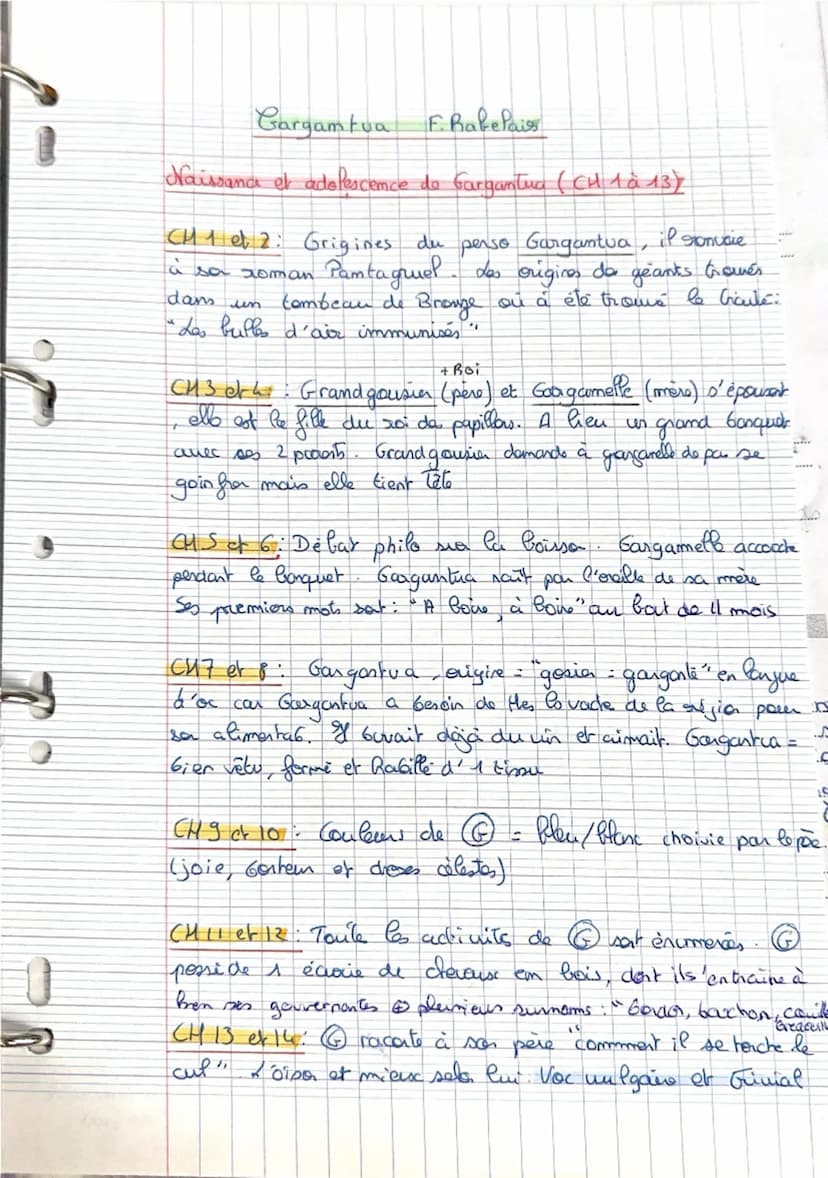 Gargantua F. Rabelais
Naissance et adolescence de Gargantua (CH 1 à 13)
CH 1 et 2 : Origines du perso Gargantua, il renvoie
à son roman Pantagruel. Les origines de géants trouvés
dans un tombeau de Bronze où à été trouvé le traité :
"Les bulles d'air immunisés".
+ Roi
CH 3 et 4 : Grandgousier (père) et Gargamelle (mère) s'épousent
, elle est la fille du roi des papillons. A lieu un grand banquet
avec ses 2 parents. Grandgousier demande à gargamelle de pas se
goinfrer mais elle tient Tête
CH 5 et 6 : Débat philo sur la boisson. Gargamelle accouche
pendant le banquet. Gargantua naît par l'oreille de sa mère
Ses premiers mots sont : "A boire, à boire" au bout de 11 mois
CH 7 et 8 : Gargantua, origine = "gosier = gargante" en langue
d'oc car Gargantua a besoin de tles les vache de la région pour
son alimentat°. Il buvait déjà du vin et aimait. Gargantua =
bien vêtu, formé et habillé d'1 tissu
CH 9 et 10 : Couleurs de G = bleu/blanc choisie par le père.
(joie, bonheur et choses célestes)
CH 11 et 12 : Toute les activités de G sont énumérés. G
possède 1 écurie de chevaux en bois, dont il s'entraîne à
ses gouvernantes plusieurs surnoms : "
CH 13 et 14 : G raconte à son père "commment il se torche le
cul" L'oison et mieux selon lui. Voc vulgaire et trivial